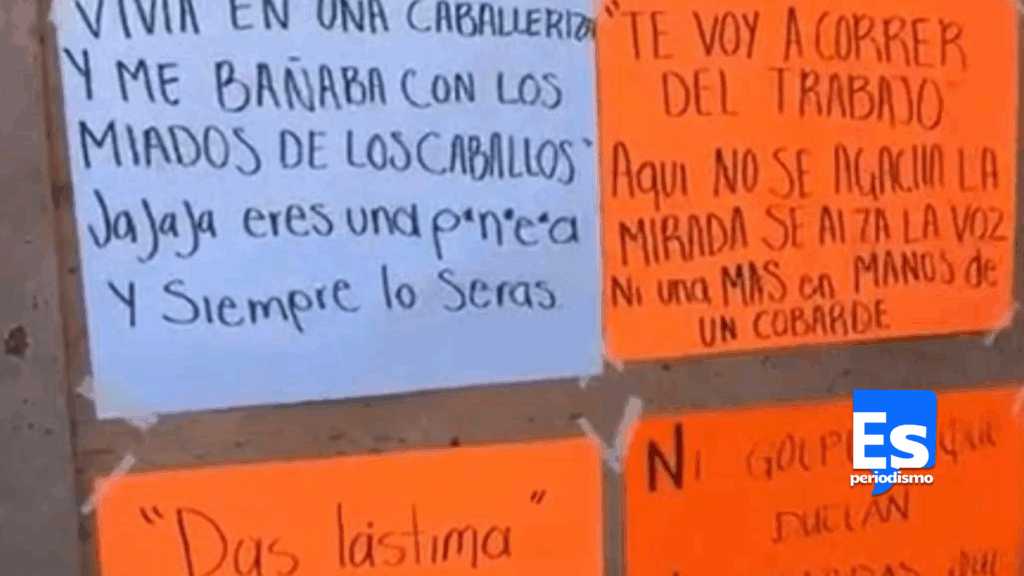 VIVIA EN UNA CABALLERIZA
Y ME BAÑABA CON LOS
MIADOS DE LOS CABALLOS"
JaJaJa eres una p*n*e*a
Y Siempre lo Seras.
"TE VOY A CORRER
DEL TRABAJO"
AquI NO SE AGACHA LA
MIRADA SE ALZA LA VOZ
Ni una MAS en MANOS de
UN COBARDE
"Das lástima"
Ni GOLP QUE
DUELAN
Es
periodismo